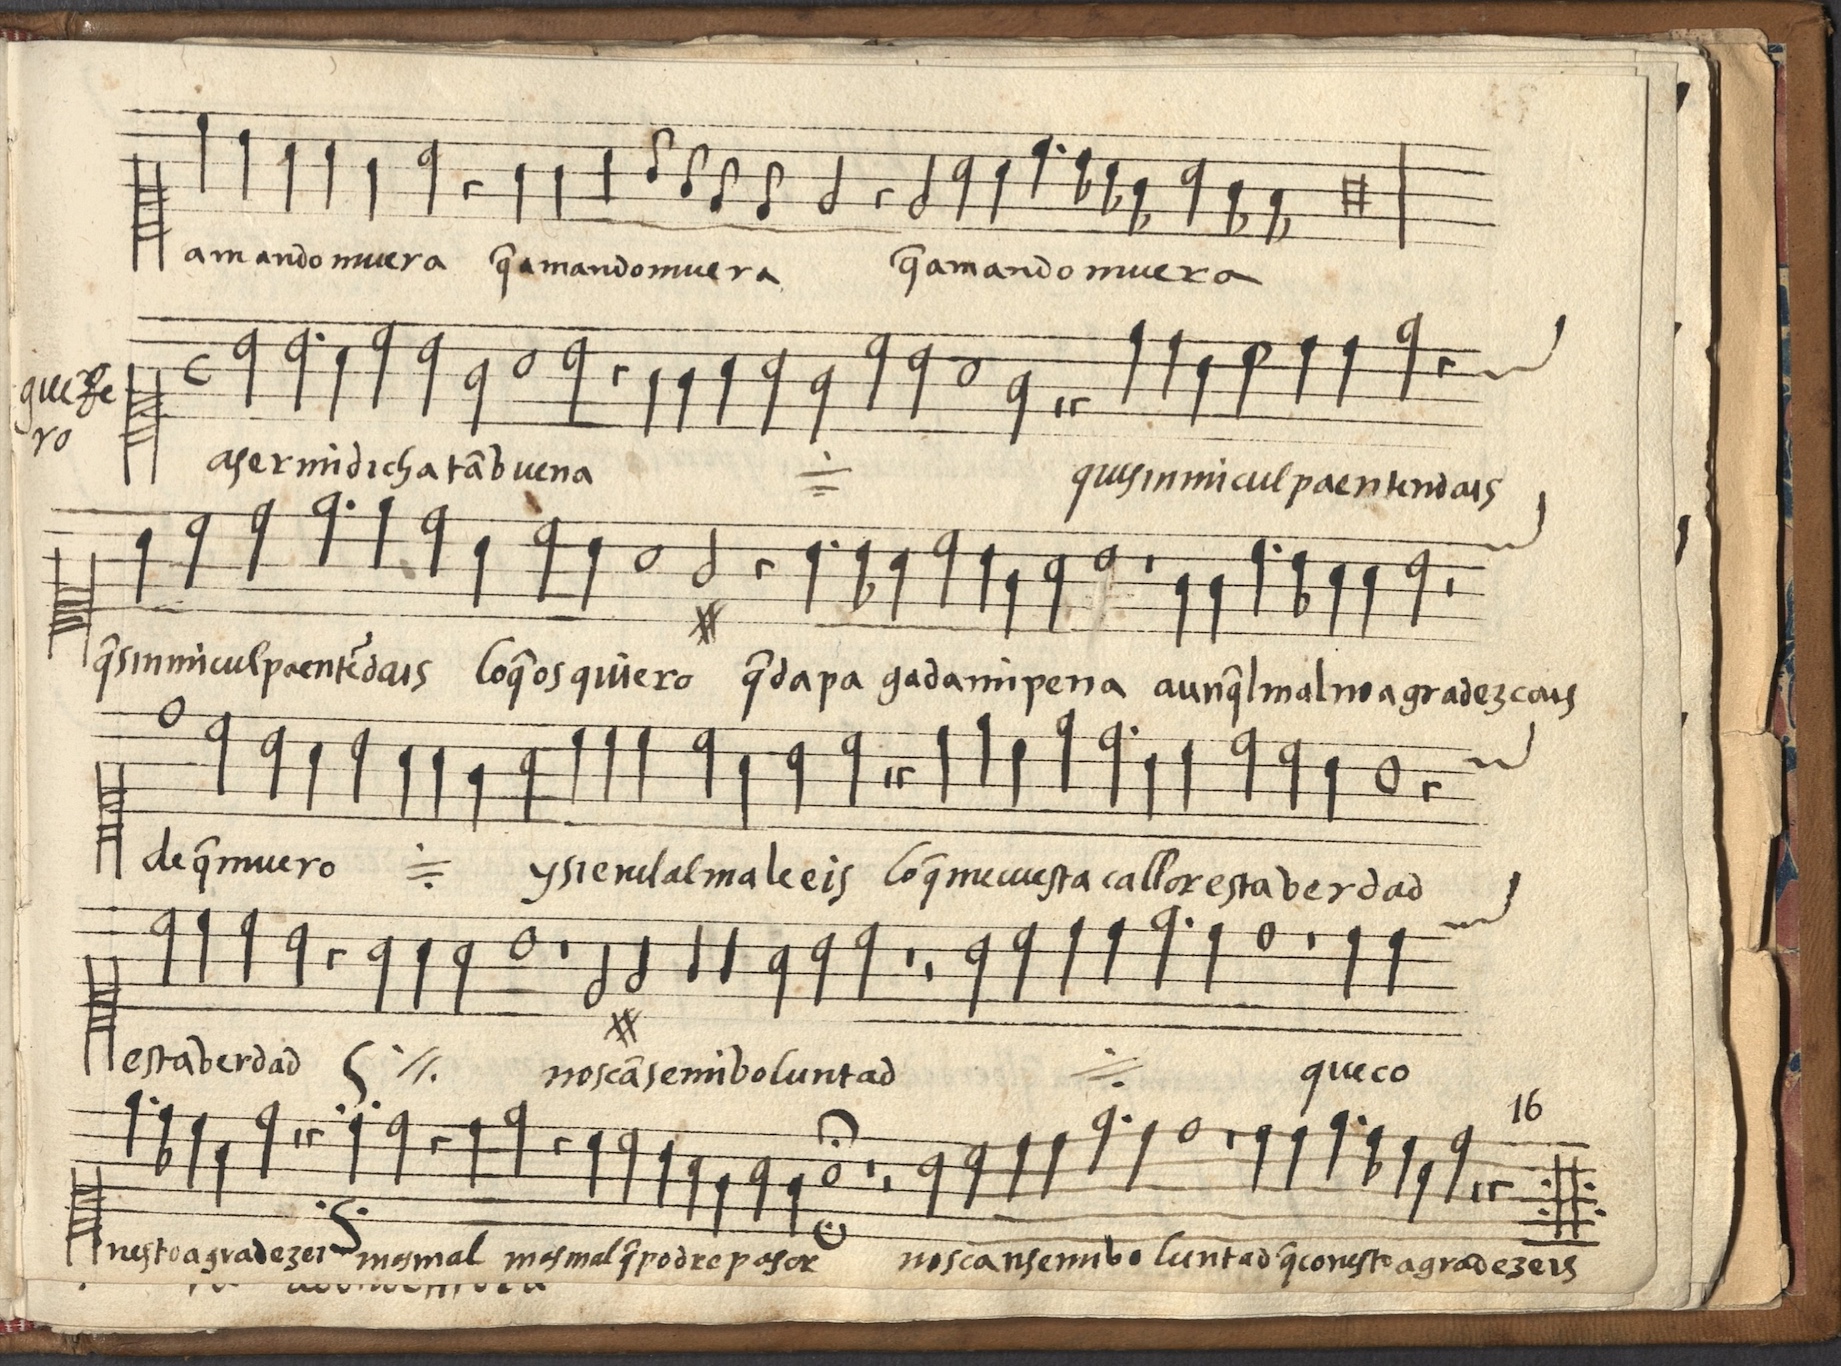 amando muera q̃ amando muera q̃ amando muera
guerre
ro
a ser mi dicha tã buena qui sin mi culpa entendais
q̃ sin mi culpa entẽdais lo q̃ os quiero q̃da pagada mi pena aunq̃l mal no agradezcais
de q̃ muero y si en el alma leeis lo q̃ me cuesta callar esta berdad
esta berdad nos cãse mi boluntad que co
16
nesto agradezeis mas mal mas mal q̃ podre pasar nos canse mi boluntad q̃ conesto agradezeis